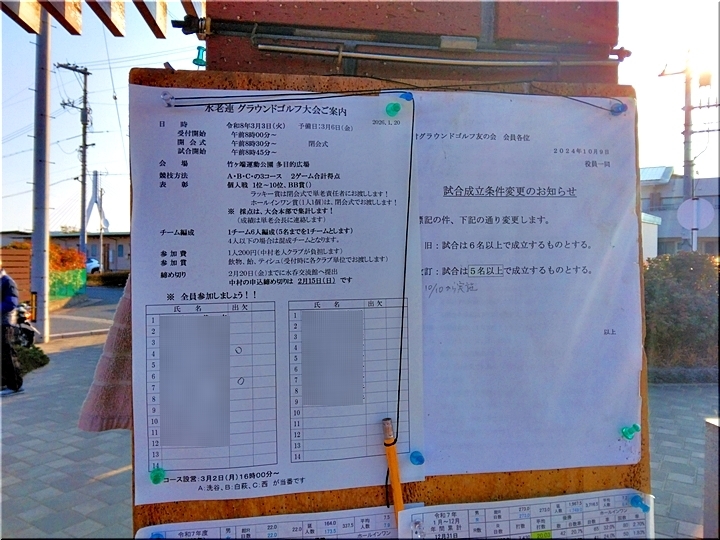 水老連 グラウンドゴルフ大会ご案内
2026.1.20
日 時 令和8年3月3日(火) 予備日:3月6日(金)
受付開始 午前8時00分～
開会式 午前8時30分～ 閉会式
試合開始 午前8時45分～
会 場 竹ヶ端運動公園 多目的広場
競技方法 A・B・Cの3コース 2ゲーム合計得点
表 彰 個人戦 1位～10位、BB賞()
ラッキー賞は閉会式で単老責任者にお渡しします!
ホールインワン賞(1人1個)は、閉会式でお渡しします!
※ 採点は、大会本部で集計します!
(成績は単老会長に連絡します)
チーム編成 1チーム6人編成(5名までを1チームとします)
4人以下の場合は混成チームとなります。
参加費 1人200円(中村老人クラブが負担します)
参加賞 飲物、飴、ティシュ(受付時に各クラブ単位でお渡しします)
締め切り 2月20日(金)までに水呑交流館へ提出
中村の申込締め切りは 2月15日(日) です
※ 全員参加しましょう!!
氏 名 出 欠
氏 名 出 欠
1
2
3
4 ○
5
6
7 ○
8
9
10
11
12
13
14
1
2
3
4
5
6
7
8
9
10
11
12
13
14
コース設営:3月2日(月)16時00分～
A:洗谷、B:白萩、C:西 が当番です
グラウンドゴルフ友の会 会員各位
2024年10月9日
役員一同
試合成立条件変更のお知らせ
標記の件、下記の通り変更します。
旧:試合は6名以上で成立するものとする。
改訂:試合は5名以上で成立するものとする。
10/10から実施
以上
令和7年度
令和7年
1月～12月
年間累計
12月31日
ホールインワン